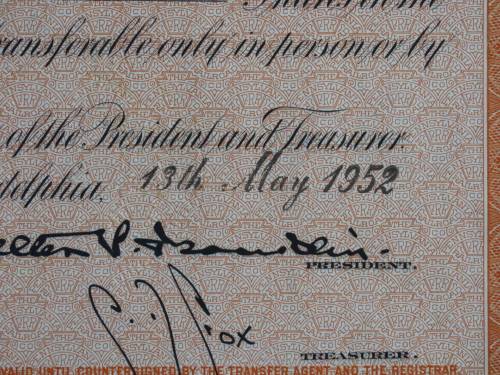 transferable only in person or by
of the President and Treasurer.
delphia, 13th May 1952
P. Franklin.
PRESIDENT.
Fox
TREASURER.
VALID UNTIL COUNTERSIGNED BY THE TRANSFER AGENT AND THE REGISTRAR.